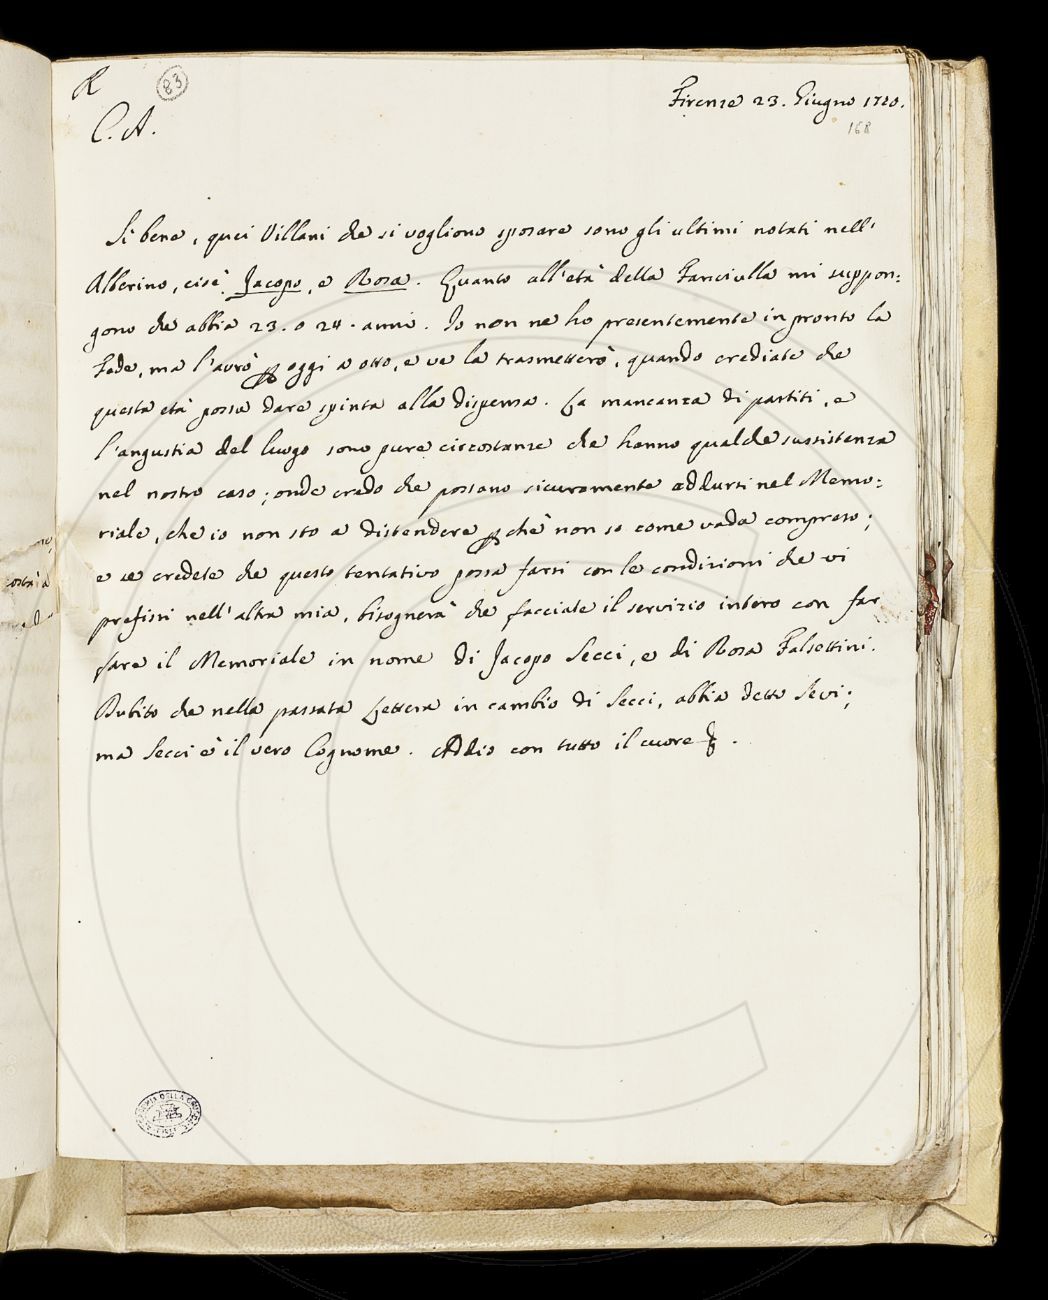 R
83
C. A.
Firenze 23. Giugno 1720.
168
Si bene, quei Villani che si vogliono sposare sono gli ultimi notati nell'
Alberino, cioè Jacopo, e Rosa. Quanto all'età della Fanciulla mi suppon:
gono che abbia 23. o 24. anni. Io non ne ho presentemente in pronto la
Fede, ma l'avrò p oggi a otto, e ve la trasmetterò, quando crediate che
questa età possa dare spinta alla dispensa. La mancanza di partiti, e
l'angustia del luogo sono pure circostanze che hanno qualche sussistenza
nel nostro caso; onde credo che possano sicuramente addursi nel Memo:
riale, che io non sto a distendere p chè non so come vada compreso;
e se credete che questo tentativo possa farsi con le condizioni che vi
prefissi nell'altra mia, bisognerà che facciate il servizio intero con far
fare il Memoriale in nome di Jacopo Secci, e di Rosa Falsettini.
Dubito che nella passata Lettera in cambio di Secci, abbia detto Sevi;
ma Secci è il vero Cognome. Addio con tutto il cuore.